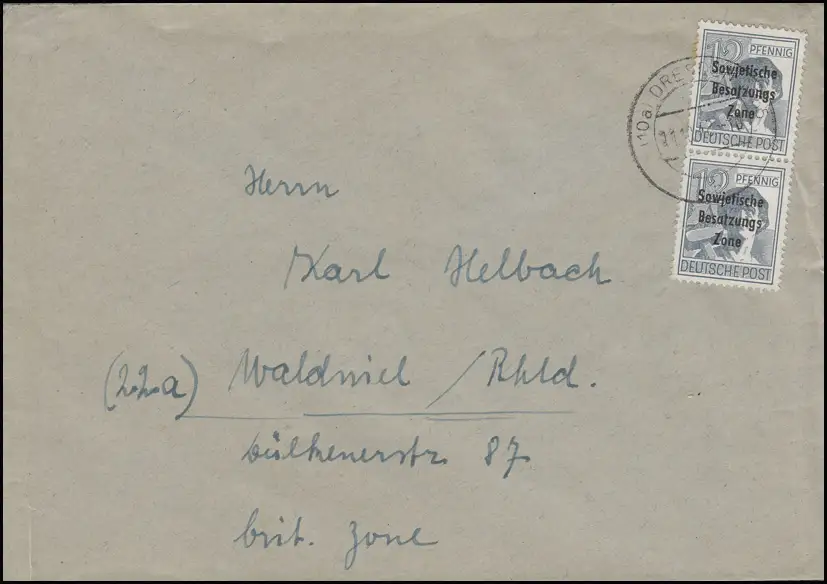 12 PFENNIG
Sowjetische
Besatzungs
Zone
DEUTSCHE POST
12 PFENNIG
Sowjetische
Besatzungs
Zone
DEUTSCHE POST
(10a) DRESDEN
Herrn
Karl Helbach
(22a) Waldniel / Rhld.
Dülkenerstr. 87
brit. Zone